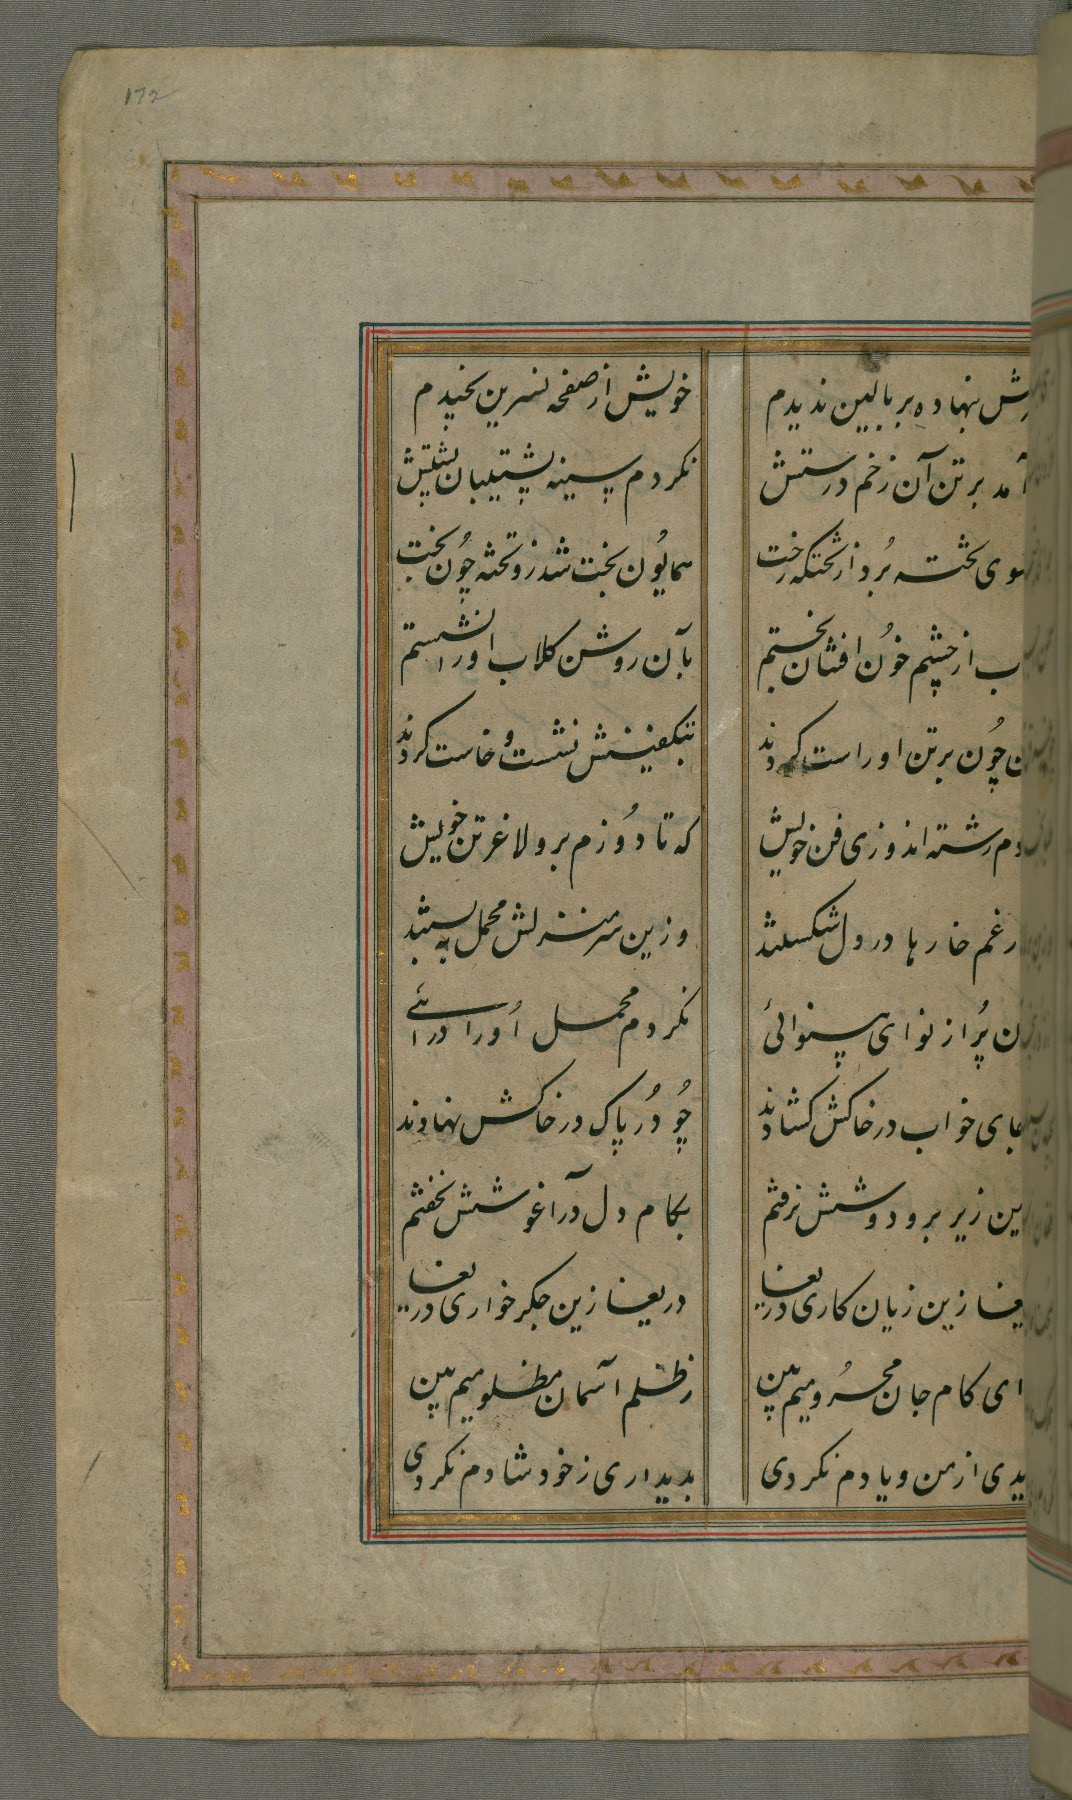 172
نهاده بر بالین ندیدم خویش از صفحه نسرین نچیدم
آمد بر تن آن زخم درستش نکردم سینه پشتیبان پشتش
سوی تخته برد از تختگه رخت همایون بخت شد زو تخته چون تخت
از چشم خون افشان نجستم بآن روشن کلاب او را نشستم
چون بر تن او راست کردند بتکفینش نشست و خاست کردند
رشته اندوزی فن خویش که تا دوزم برو لاغر تن خویش
غم خارها در دل شکستند وزین سر منزلش محمل به بستند
پر از نوای بینوائی نکردم محمل او را درائے
جای خواب در خاکش کشادند چو در پاک در خاکش نهادند
زیر بر و دوشش نرفتم بکام دل در آغوشش نخفتم
زین زیان کاری دریغا دریغا زین جکر خواری دریغا
ای کام جان محرومیم بین ز ظلم آسمان مظلومیم بین
از من و یادم نکردی بدیداری ز خود شادم نکردی